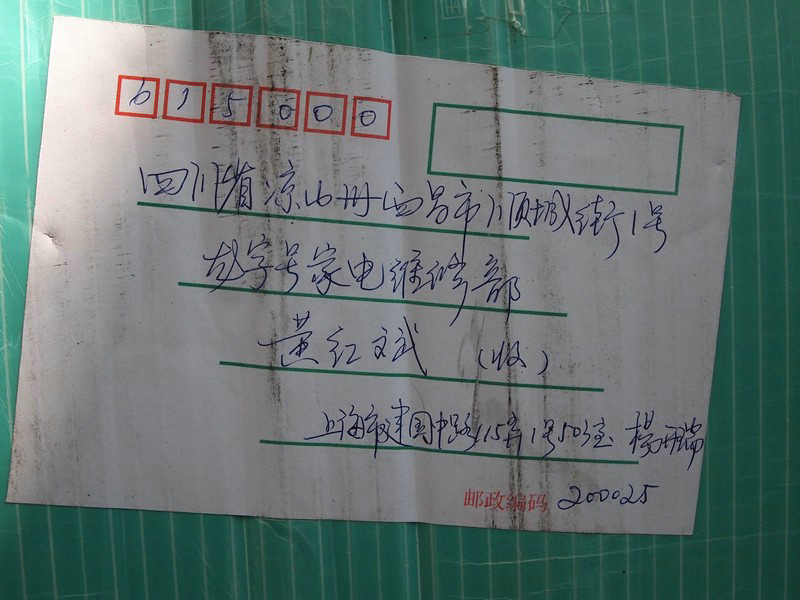 615000
四川省凉山州西昌市顺城街1号
老字号家电维修部
黄红文斌 (收)
上海市建国中路115弄1号501室 杨开瑞
邮政编码 200025